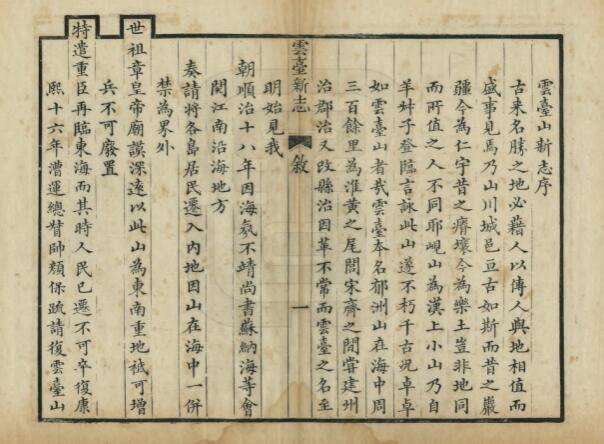 雲臺山新志序
古來名勝之地必藉人以傳人與地相值而
盛事見焉乃山川城邑亘古如斯而昔之巖
疆今為仁宇昔之瘠壤今為樂土豈非地同
而所值之人不同耶峴山為漢上小山乃自
羊叔子登臨言詠此山遂不朽千古況卓卓
如雲臺山者哉雲臺本名郁洲山在海中周
三百餘里為淮黃之尾閭宋齊之間甞建州
治郡治又改縣治因革不常而雲臺之名至
雲臺新志
敘
一
明始見我
朝順治十八年因海氛不靖尚書蘇納海等會
閱江南沿海地方
奏請將各島居民遷入內地因山在海中一併
禁為界外
世祖章皇帝廟謨深遠以此山為東南重地祗可增
兵不可廢置
特遣重臣再臨東海而其時人民已遷不可卒復康
熙十六年漕運總督帥顏保疏請復雲臺山